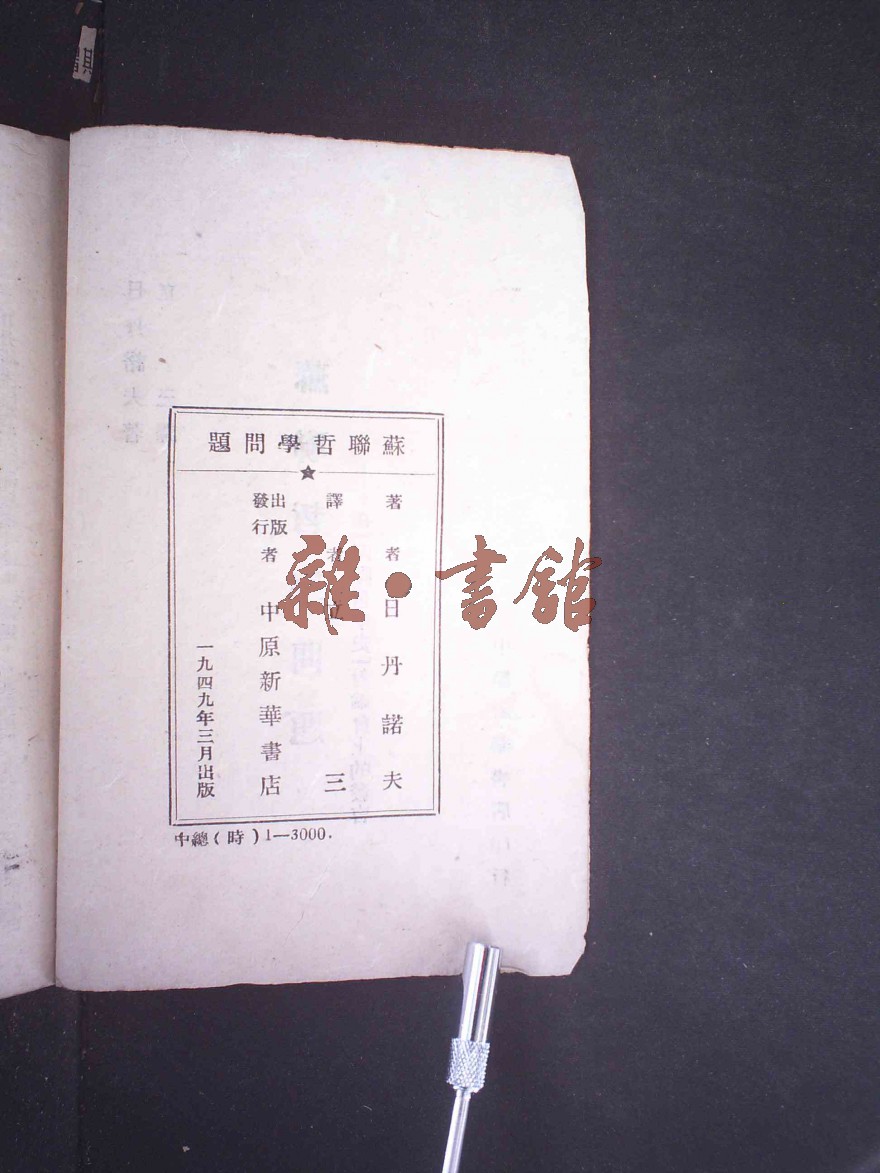 蘇聯哲學問題
著者 日丹諾夫
譯者 立三
出版發行者 中原新華書店
一九四九年三月出版
中總(時)1—3000.
雜·書館